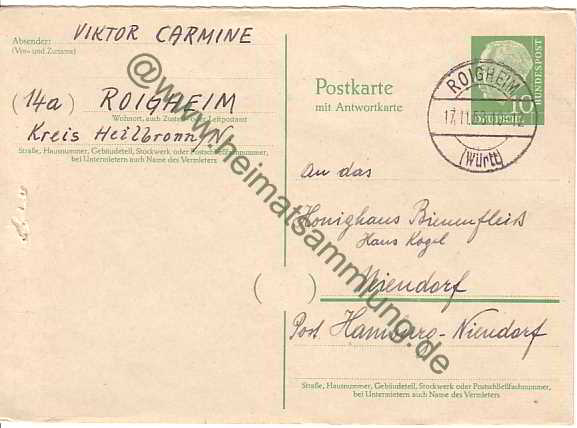 Absender: VIKTOR CARMINE
(Vor- und Zuname)
(14a) ROIGHEIM
Wohnort, auch Zustell- oder Leitpostamt
Kreis Heilbronn/N
Straße, Hausnummer, Gebäudeteil, Stockwerk oder Postschließfachnummer,
bei Untermietern auch Name des Vermieters
Postkarte
mit Antwortkarte
DEUTSCHE
BUNDESPOST
10
ROIGHEIM
17.11.5
(Württ)
An das
Honighaus Bienenfleiß
Hans Kogel
Niendorf
( )
Post Hamburg-Niendorf
Straße, Hausnummer, Gebäudeteil, Stockwerk oder Postschließfachnummer,
bei Untermietern auch Name des Vermieters
@www.heimatsammlung.de